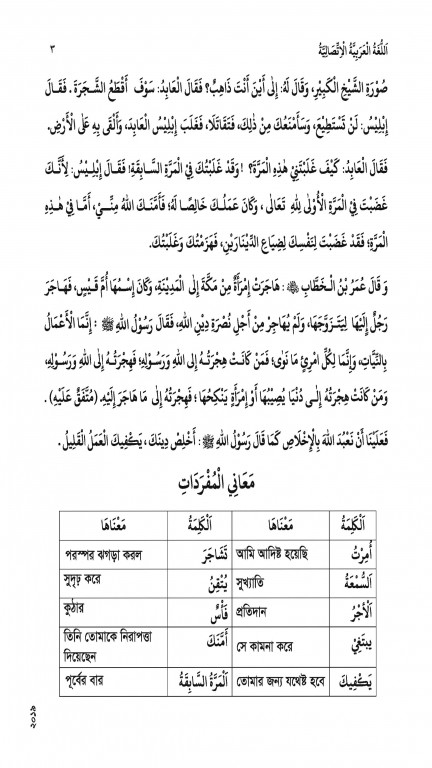 اَللُّغَةُ الْعَرَبِيَّةُ الْاِتِّصَالِيَّةُ ٣
صُوْرَةِ الشَّيْخِ الْكَبِيْرِ، وَقَالَ لَهُ: إِلٰى أَيْنَ أَنْتَ ذَاهِبٌ؟ فَقَالَ الْعَابِدُ: سَوْفَ أَقْطَعُ الشَّجَرَةَ . فَقَالَ
إِبْلِيْسُ: لَنْ تَسْتَطِيْعَ، وَسَأَمْنَعُكَ مِنْ ذٰلِكَ، فَتَقَاتَلَا، فَغَلَبَ إِبْلِيْسُ الْعَابِدَ، وَأَلْقٰى بِهِ عَلَى الْأَرْضِ.
فَقَالَ الْعَابِدُ: كَيْفَ غَلَبْتَنِيْ هٰذِهِ الْمَرَّةَ؟ ! وَقَدْ غَلَبْتُكَ فِيْ الْمَرَّةِ السَّابِقَةِ! فَقَالَ إِبْلِيْسُ: لِأَنَّكَ
غَضَبْتَ فِيْ الْمَرَّةِ الْأُوْلٰى لِلّٰهِ تَعَالٰى ، وَكَانَ عَمَلُكَ خَالِصًا لَهُ؛ فَأَمَّنَكَ اللهُ مِنِّيْ، أَمَّا فِيْ هٰذِهِ
الْمَرَّةِ؛ فَقَدْ غَضَبْتَ لِنَفْسِكَ لِضِيَاعِ الدِّيْنَارَيْنِ، فَهَزَمْتُكَ وَغَلَبْتُكَ.
وَ قَالَ عُمَرُ بْنُ الْخَطَّابِ ﷺ : هَاجَرَتْ إِمْرَأَةٌ مِنْ مَكَّةَ إِلٰى الْمَدِيْنَةِ، وَكَانَ إِسْمُهَا أُمَّ قَيْسٍ، فَهَاجَرَ
رَجُلٌ إِلَيْهَا لِيَتَزَوَّجَهَا، وَلَمْ يُهَاجِرْ مِنْ أَجْلِ نُصْرَةِ دِيْنِ اللهِ، فَقَالَ رَسُوْلُ اللهِ ﷺ : إِنَّمَا الْأَعْمَالُ
بِالنِّيَّاتِ، وَإِنَّمَا لِكُلِّ امْرِئٍ مَا نَوٰى؛ فَمَنْ كَانَتْ هِجْرَتُهُ إِلٰى اللهِ وَرَسُوْلِهِ؛ فَهِجْرَتُهُ إِلٰى اللهِ وَرَسُوْلِهِ؛
وَمَنْ كَانَتْ هِجْرَتُهُ إِلٰى دُنْيَا يُصِيْبُهَا أَوْ إِمْرَأَةٍ يَنْكِحُهَا ؛ فَهِجْرَتُهُ إِلٰى مَا هَاجَرَ إِلَيْهِ. (مُتَّفَقٌ عَلَيْهِ) .
فَعَلَيْنَا أَنْ نَعْبُدَ اللهَ بِالْإِخْلَاصِ كَمَا قَالَ رَسُوْلُ اللهِ ﷺ : أَخْلِصْ دِيْنَكَ ، يَكْفِيْكَ الْعَمَلُ الْقَلِيْلُ.
مَعَانِي الْمُفْرَدَاتِ
اَلْكَلِمَةُ مَعْنَاهَا اَلْكَلِمَةُ مَعْنَاهَا
أُمِرْتُ আমি আদিষ্ট হয়েছি تَشَاجَرَ পরস্পর ঝগড়া করল
اَلسُّمْعَةُ সুখ্যাতি يُتْقِنُ সুদৃঢ় করে
اَلْأَجْرُ প্রতিদান فَأْسٌ কুঠার
يَبْتَغِيْ সে কামনা করে أَمَّنَكَ তিনি তোমাকে নিরাপত্তা
দিয়েছেন
يَكْفِيْكَ তোমার জন্য যথেষ্ট হবে اَلْمَرَّةُ السَّابِقَةُ পূর্বের বার
২০১৯